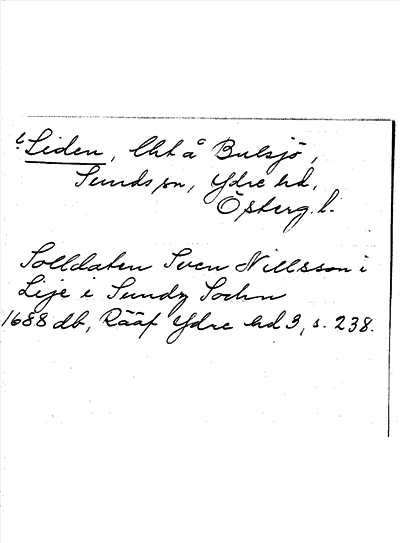 Liden, lht å Bulsjö,
Sunds sn, Ydre hd,
Österg. l.
Solldaten Sven Nillsson i
Lije i Sundz Sochn
1688 db, Rääf Ydre hd 3, s. 238.